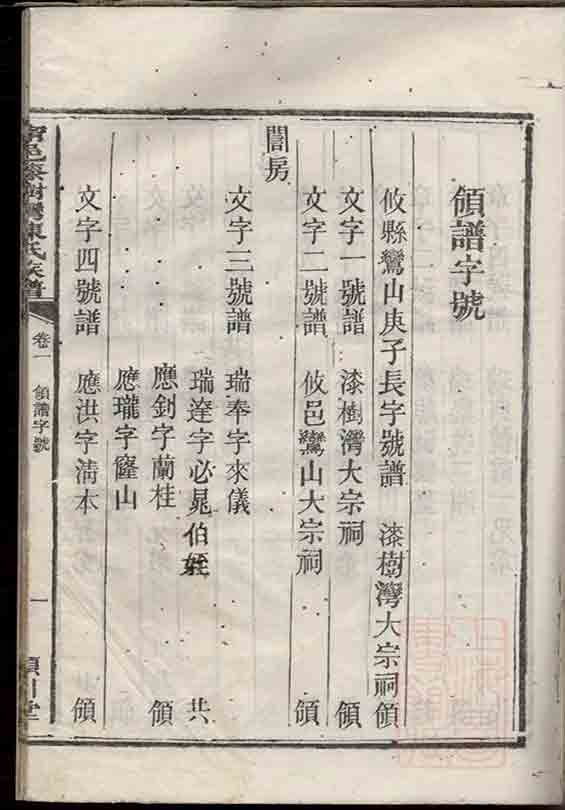 領譜字號
攸縣鸞山庚子長字號譜 漆樹灣大宗祠領
文字一號譜 漆樹灣大宗祠 領
文字二號譜 攸邑鸞山大宗祠 領
誾房
文字三號譜 瑞奉字來儀
瑞達字必晁伯姪 共
應釗字蘭桂 領
應瓏字窿山
文字四號譜 應洪字清本 領
漆樹灣陳氏族譜
卷一 領譜字號
一
潁川堂